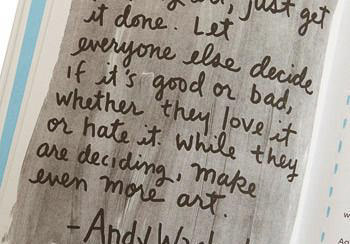 just get
it done. Let
everyone else decide
if it's good or bad,
whether they love it
or hate it. While they
are deciding, make
even more art.
-Andy